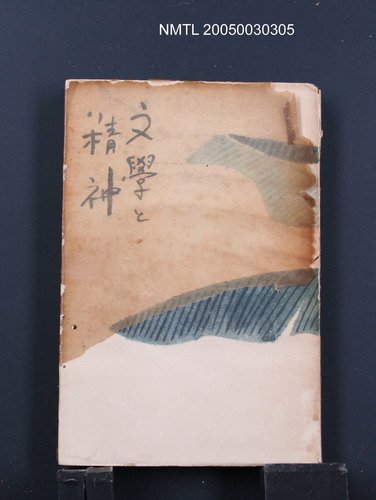 NMTL 20050030305
文學と
精神